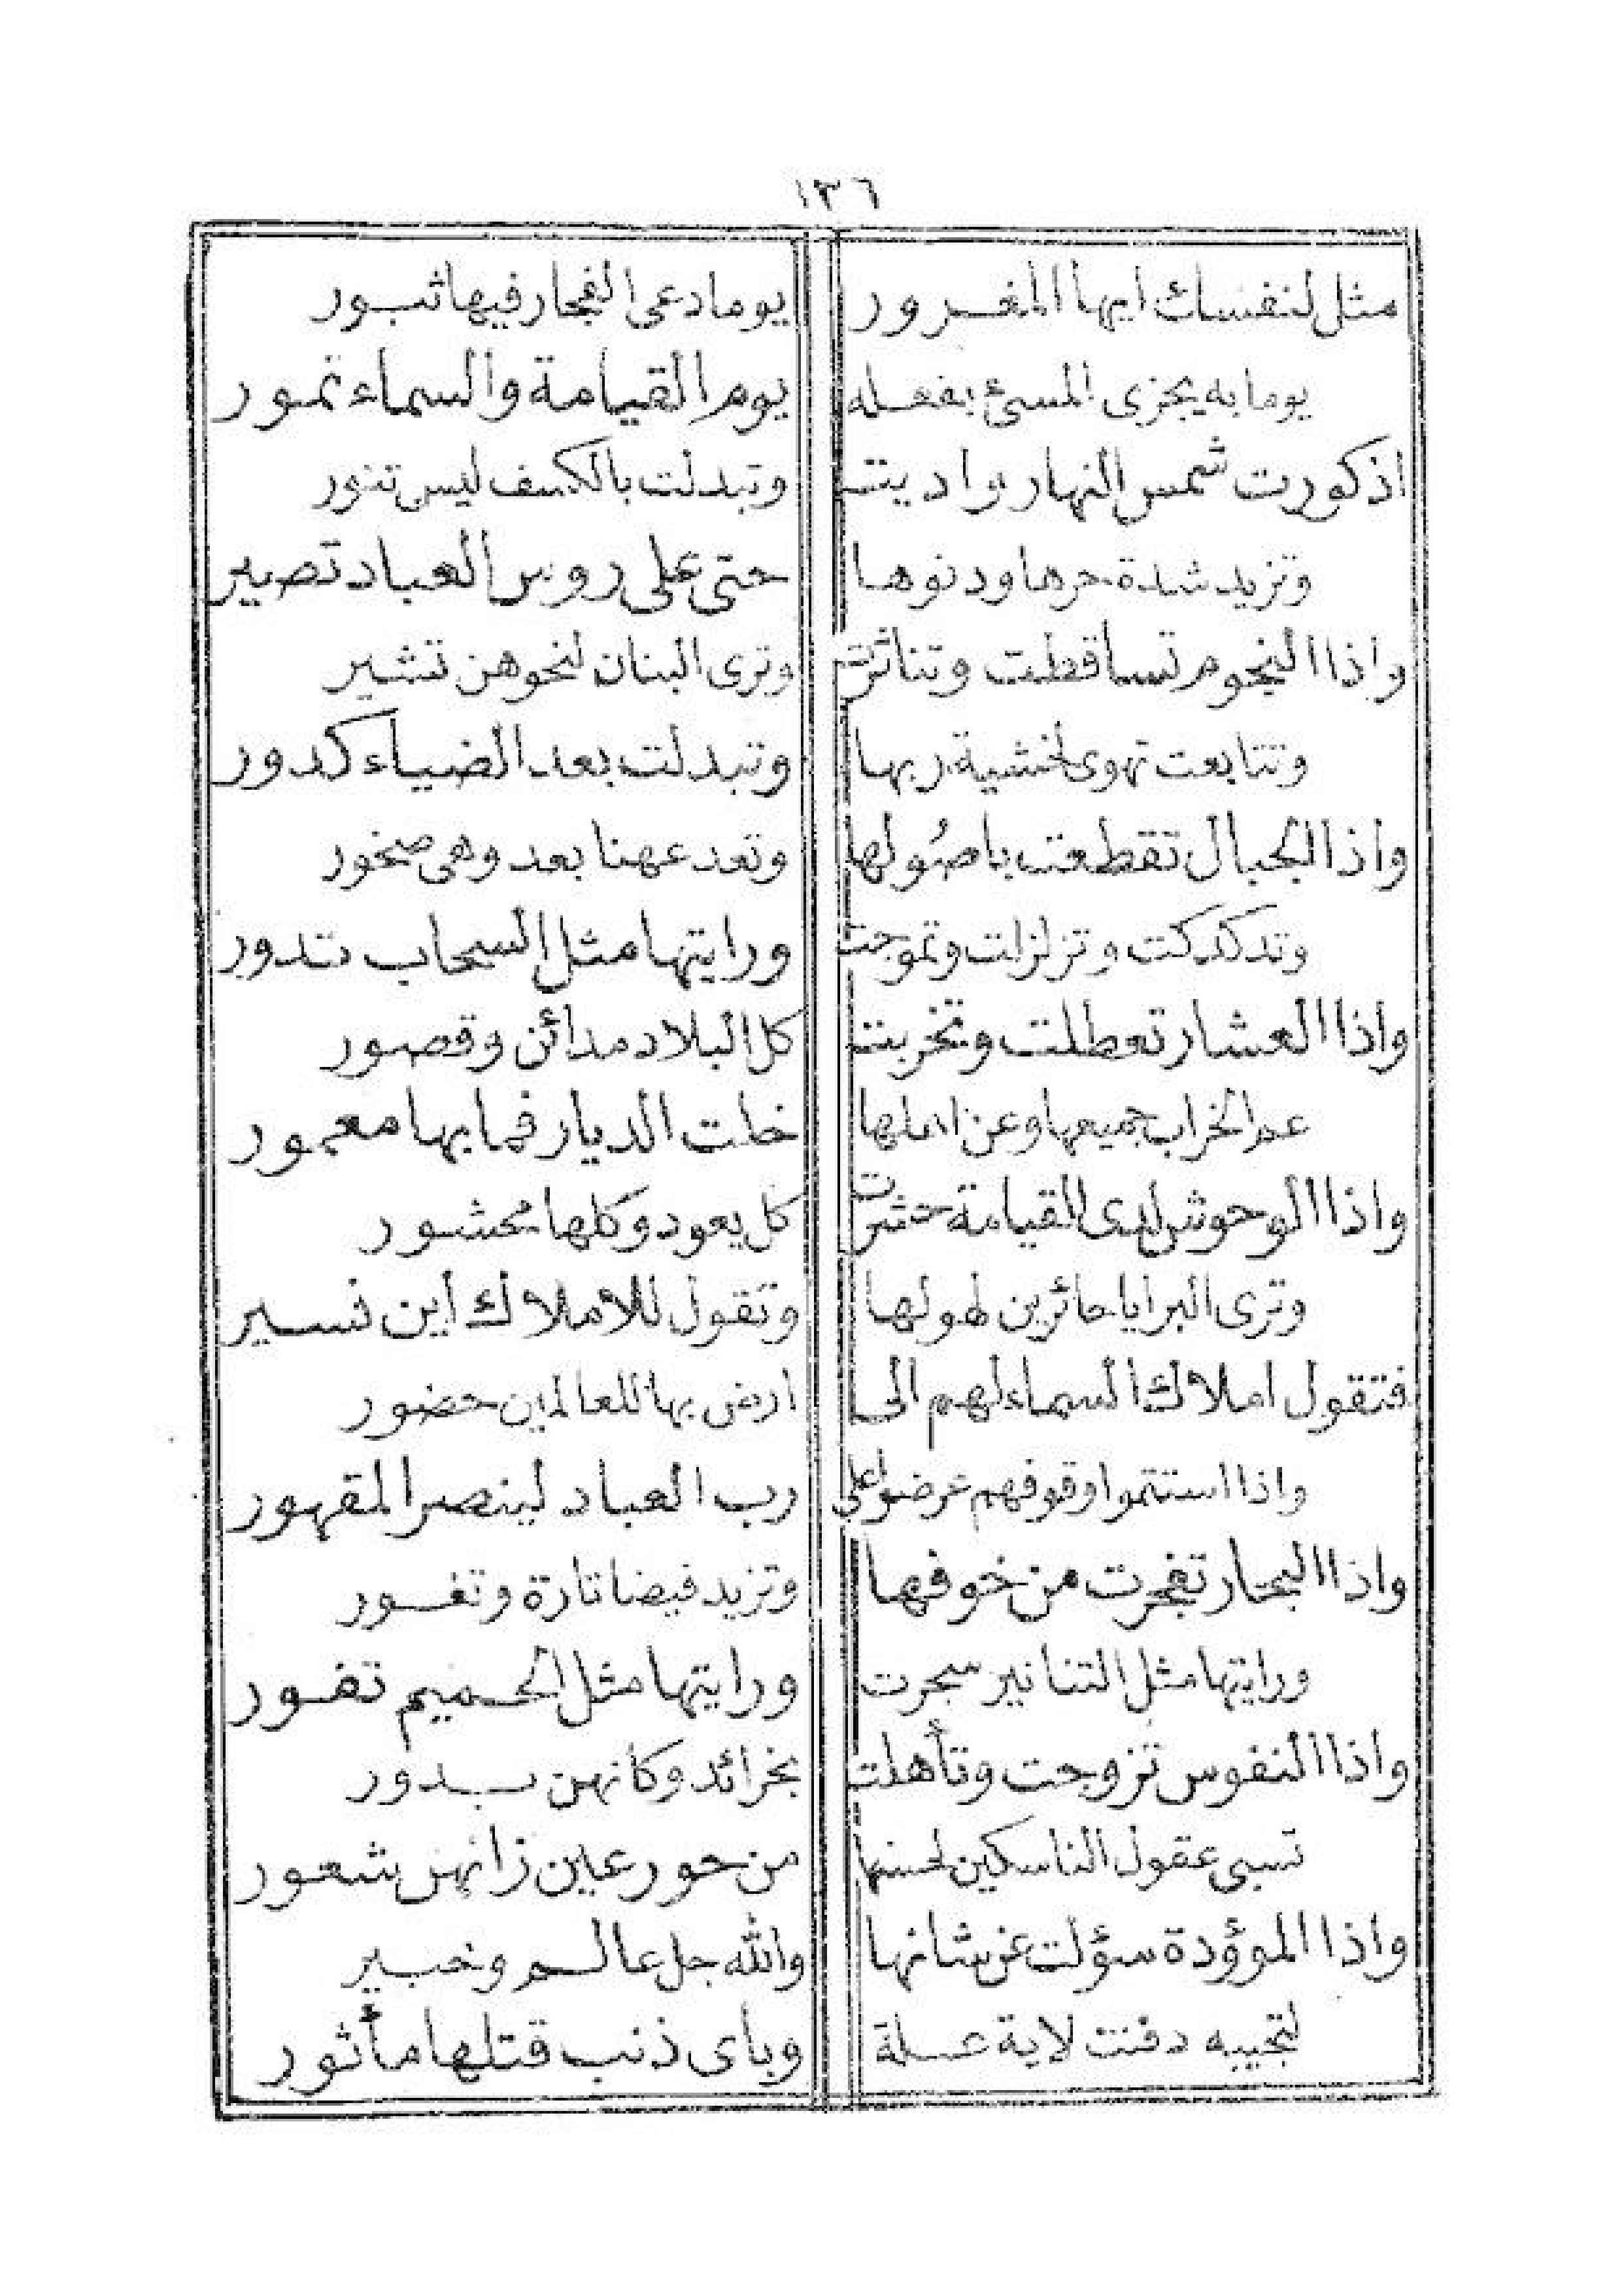 ١٣٦
مثل لنفسك ايها المغرور يوما دعى الفجار فيها ثبور
يوما به يجزى المسئ بفعله يوم القيامة والسماء تمور
اذ كورت شمس النهار وادبت وتبدلت بالكسف ليس تنور
وتزيد شدة حرها ودنوها حتى على روس العباد تصير
واذا النجوم تساقطت وتناثرت وترى البنان لنحوهن تشير
وتتابعت تهوى لخشية ربها وتبدلت بعد الضياء كدور
واذا الجبال تقطعت باصُولها وتعد عهنا بعد وهى صخور
وتدكدكت وتزلزلت وتموجت ورايتها مثل السحاب تدور
واذا العشار تعطلت وتخربت كل البلاد مدائن وقصور
عم الخراب جميعها وعن اهلها خلت الديار فما بها معمور
واذا الوحوش لدى القيامة حشرت كل يعود وكلها محشور
وترى البرايا حائرين لهولها وتقول للاملاك أين نسير
فتقول املاك السماء لهم الى ارض بها للعالمين حضور
واذا استتموا وقوفهم عرضوا على رب العباد لينصر المقهور
واذا البحار تفجرت من خوفها وتزيد فيضا تارة وتغور
ورايتها مثل التنانير سجرت ورايتها مثل الحميم تفور
واذا النفوس تزوجت وتأهلت بخرائد وكانهن بدور
تسبى عقول الناسكين لحسنها من حور عين زانهن شعور
واذا الموؤدة سؤلت عن شانها والله جل عالم وخبير
لتجيبه دفنت لاية عملة وباى ذنب قتلها مأثور